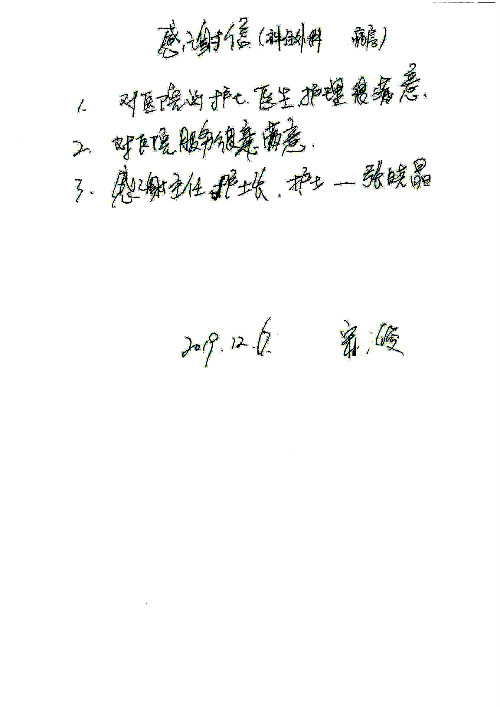 感谢信(科室外科 病房)
1. 对医院的护士、医生护理很满意.
2. 对医院服务很满意.
3. 感谢主任护士长、护士一张晓晶
2019.12.6